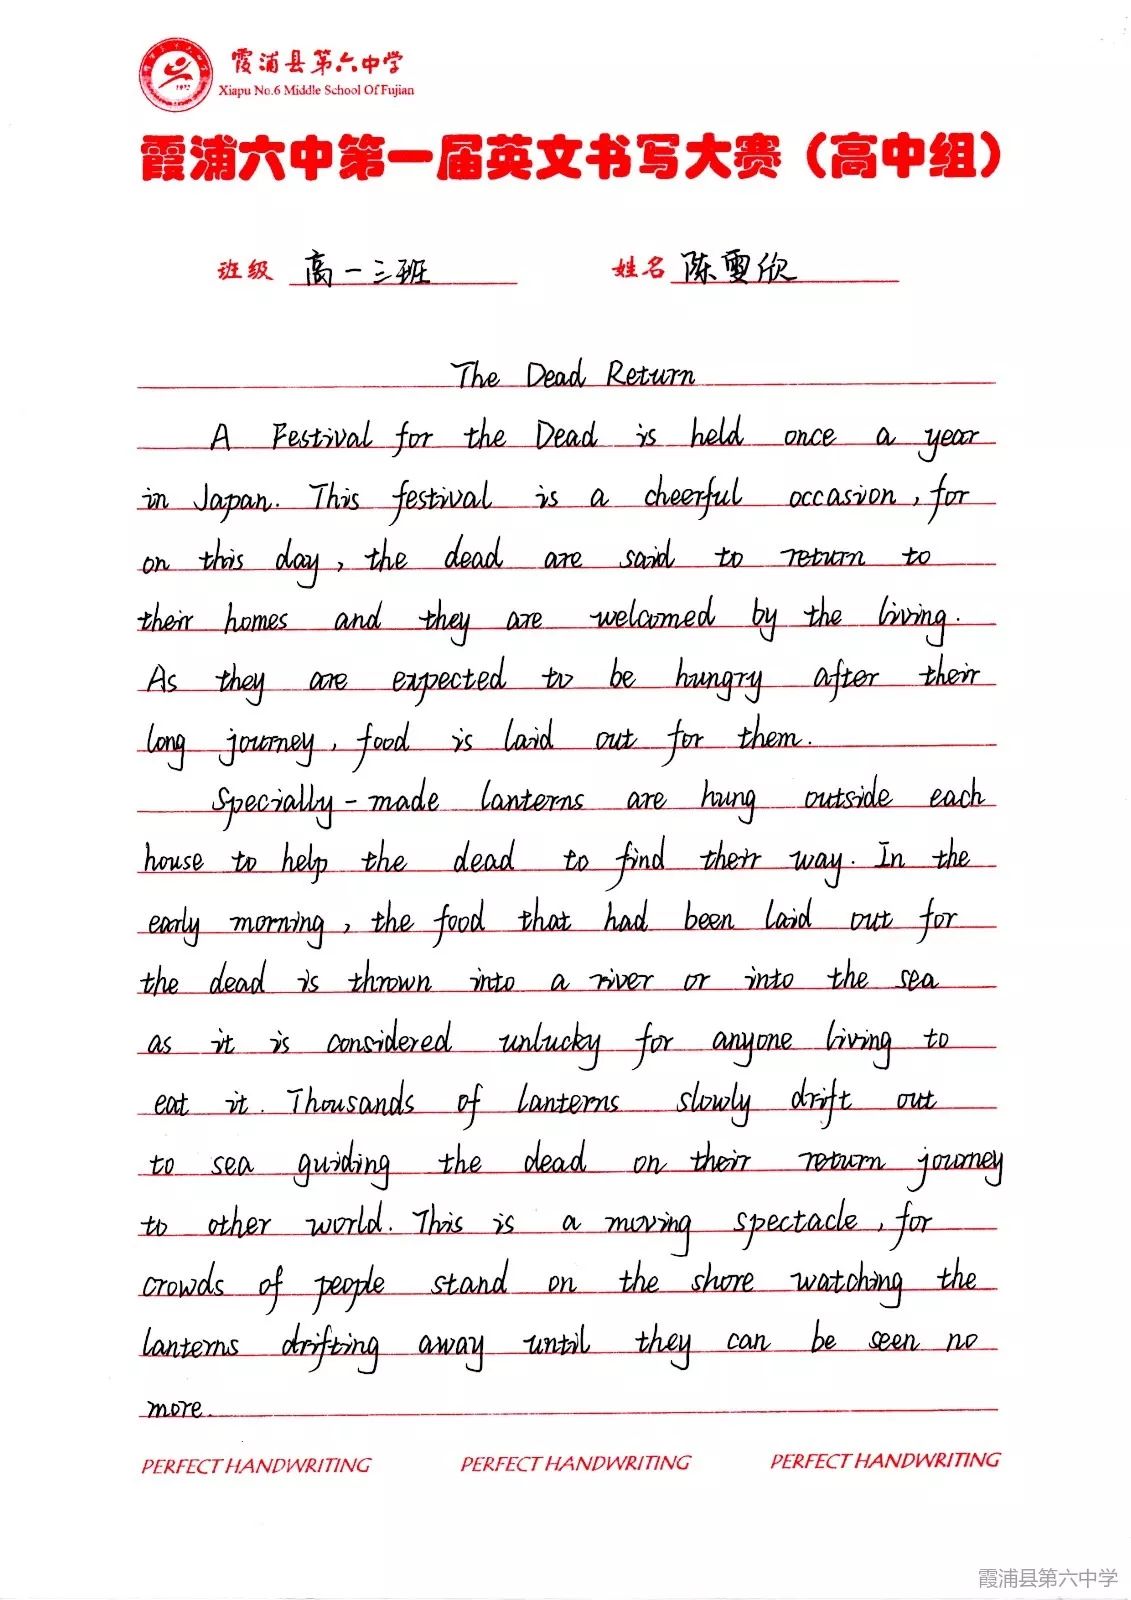 霞浦县第六中学
Xiapu No.6 Middle School Of Fujian
1972
霞浦六中第一届英文书写大赛（高中组）
班级 高一三班 姓名 陈雯欣
The Dead Return
A Festival for the Dead is held once a year
in Japan. This festival is a cheerful occasion, for
on this day, the dead are said to return to
their homes and they are welcomed by the living.
As they are expected to be hungry after their
long journey, food is laid out for them.
Specially-made lanterns are hung outside each
house to help the dead to find their way. In the
early morning, the food that had been laid out for
the dead is thrown into a river or into the sea
as it is considered unlucky for anyone living to
eat it. Thousands of lanterns slowly drift out
to sea guiding the dead on their return journey
to other world. This is a moving spectacle, for
crowds of people stand on the shore watching the
lanterns drifting away until they can be seen no
more.
PERFECT HANDWRITING PERFECT HANDWRITING PERFECT HANDWRITING
霞浦县第六中学